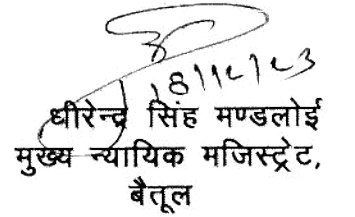 18/12/23
धीरेन्द्र सिंह मण्डलोई
मुख्य न्यायिक मजिस्ट्रेट,
बैतूल